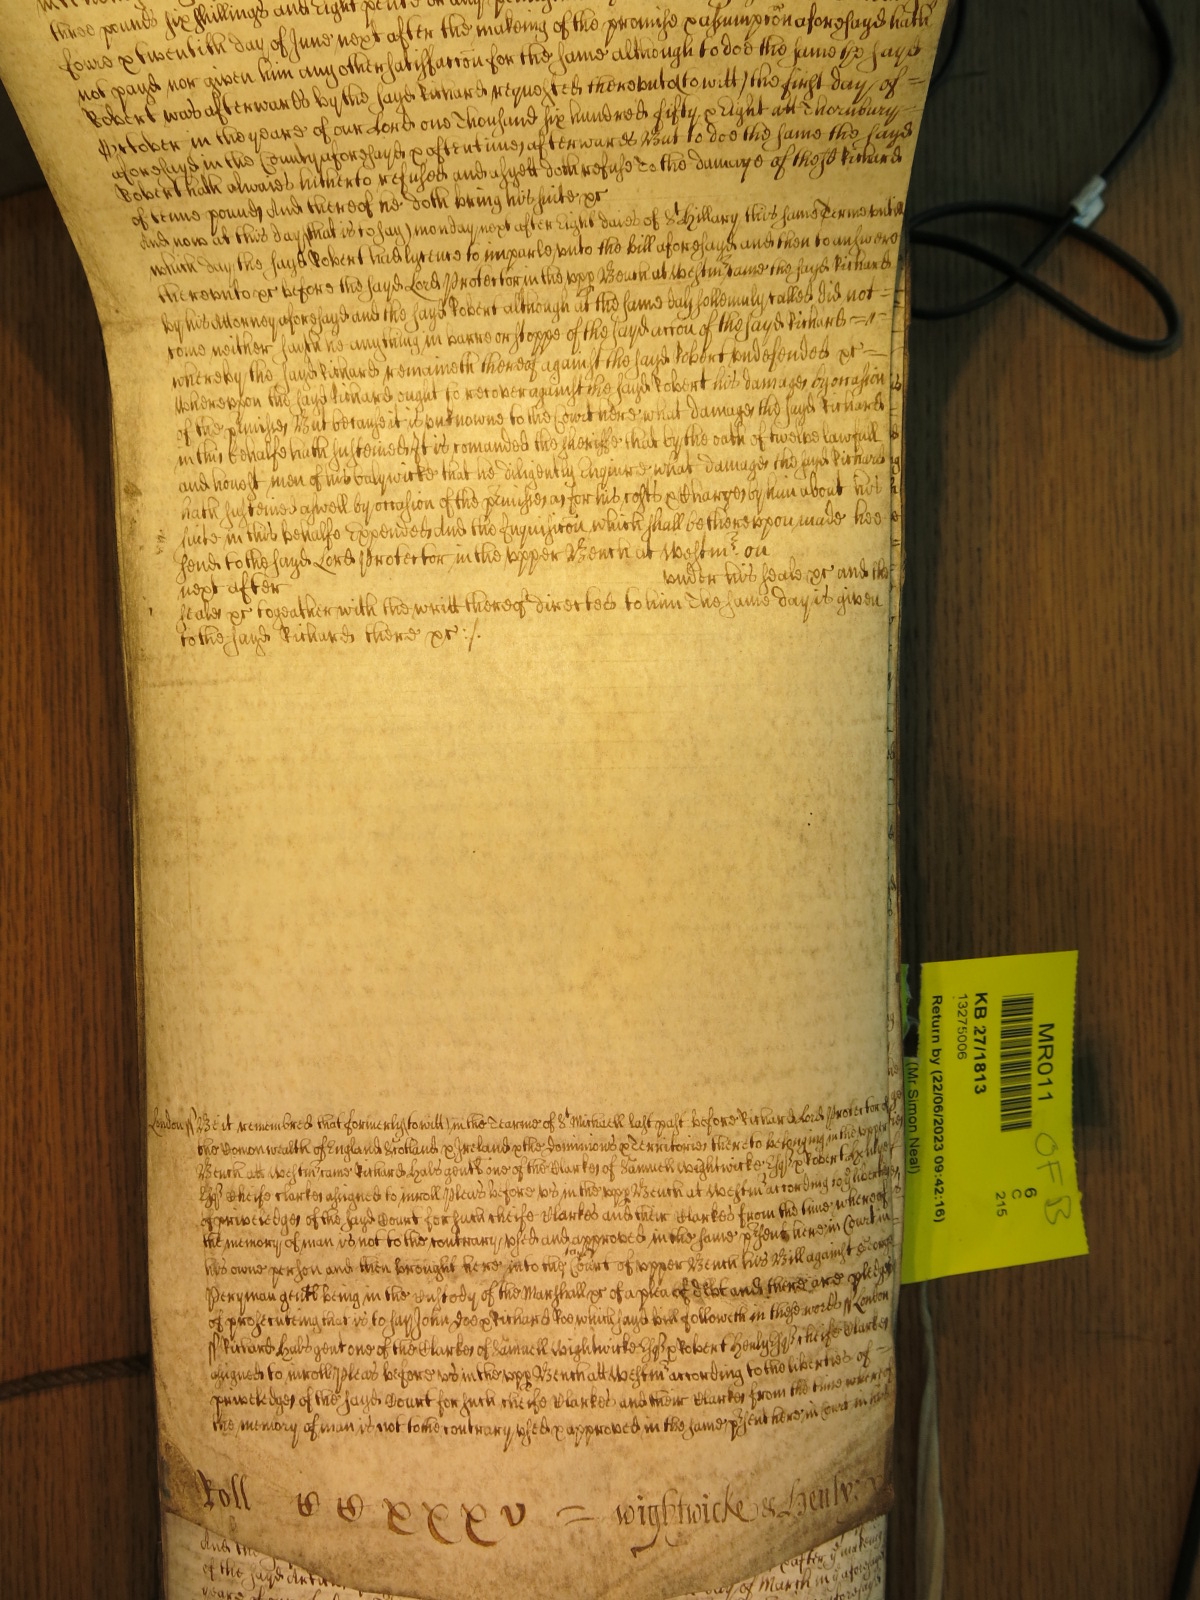 three pounds six shillings and Eight pence or any peny
fowre & twentith day of June next after the makeing of the promise & assumpcon aforesayd hath
not payd nor given him any other satisfaccon for the same although to doe the same the sayd
Robert was afterwards by the sayd Richard requested thereunto (to witt) the first day of =
October in the yeare of our Lord one Thousand six hundred fifty & Eight att Thornbury
aforesayd in the County aforesayd & oftentimes afterwards But to doe the same the sayd
Robert hath alwaies hitherto refused and as yett doth refuse To the damage of the sd Richard
of tenne pounds And thereof he doth bring his suite &c
And now at this day (that is to say) monday next after Eight daies of St Hillary this same Terme untill
which day the sayd Robert had lycence to imparle unto the bill aforesayd and then to answere
thereunto &c before the sayd Lord Protector in the upp Bench at Westmr came the sayd Richard
by his Attorney aforesayd and the sayd Robert although at the same day sollemnly called did not =
come neither sayth he anything in barre or stoppe of the sayd accon of the sayd Richard =
whereby the sayd Richard remaineth thereof against the sayd Robert undefended &c =
Whereupon the sayd Richard ought to recover against the sayd Robert his damages by occasion
of the p'misses But because it is unknowne to the Court here what damages the sayd Richard
in this behalfe hath susteined It is comanded the sheriffe that by the oath of twelve lawfull
and honest men of his balywicke that he diligently Enquire what damages the sayd Richard
hath susteined aswell by occasion of the p'misses as for his costs & Charges by him about his
suite in this behalfe Expended And the Inquisicon which shall be thereupon made hee
send to the sayd Lord Protector in the upper Bench at Westmr on
next after under his seale &c and the
seales &c togeather with the writt thereof directed to him The same day is given
to the sayd Richard there &c :/.
London ss Be it remembred that formerly to witt in the Tearme of St Michaell last past before Richard Lord Protector of
the Comon wealth of England Scotland & Ireland & the Dominions & Territories thereto belonging in the upper
Bench att Westmr came Richard Hals gent one of the Clarkes of Samuell Wightwicke Esqr & Robert Henley
Esqr Cheife Clarkes assigned to inroll Pleas before us in the upp Bench at Westmr according to ye liberties
of priveledges of the sayd Court for such cheife Clarkes and their Clarkes from the time whereof
the memory of man is not to the contrary used and approved in the same p'sent here in Court in
his owne person and then brought here into the sayd Court of upper Bench his Bill against George
Perryman gent being in the Custody of the Marshall &c of a plea of debt and there are pledges
of prosecuteing that is to say John Doe & Richard Roe which sayd bill followeth in these words ss London
ss Richard Hals gent one of the Clarkes of Samuell Wightwicke Esqr & Robert Henly Esqr cheife Clarkes
assigned to inroll Pleas before us in the upp Bench att Westmr according to the liberties of =
priveledges of the sayd Court for such cheife Clarkes and their Clarkes from the time whereof
the memory of man is not to the contrary used & approved in the same p'sent here in Court in his
Roll CC xxxv = Wightwicke & Henly:
of the sayd
day of March in ye aforesayd
MR011
KB 27/1813
13275006
Return by (22/06/2023 09:42:16)
(Mr Simon Neal)
6
C
215
OF B